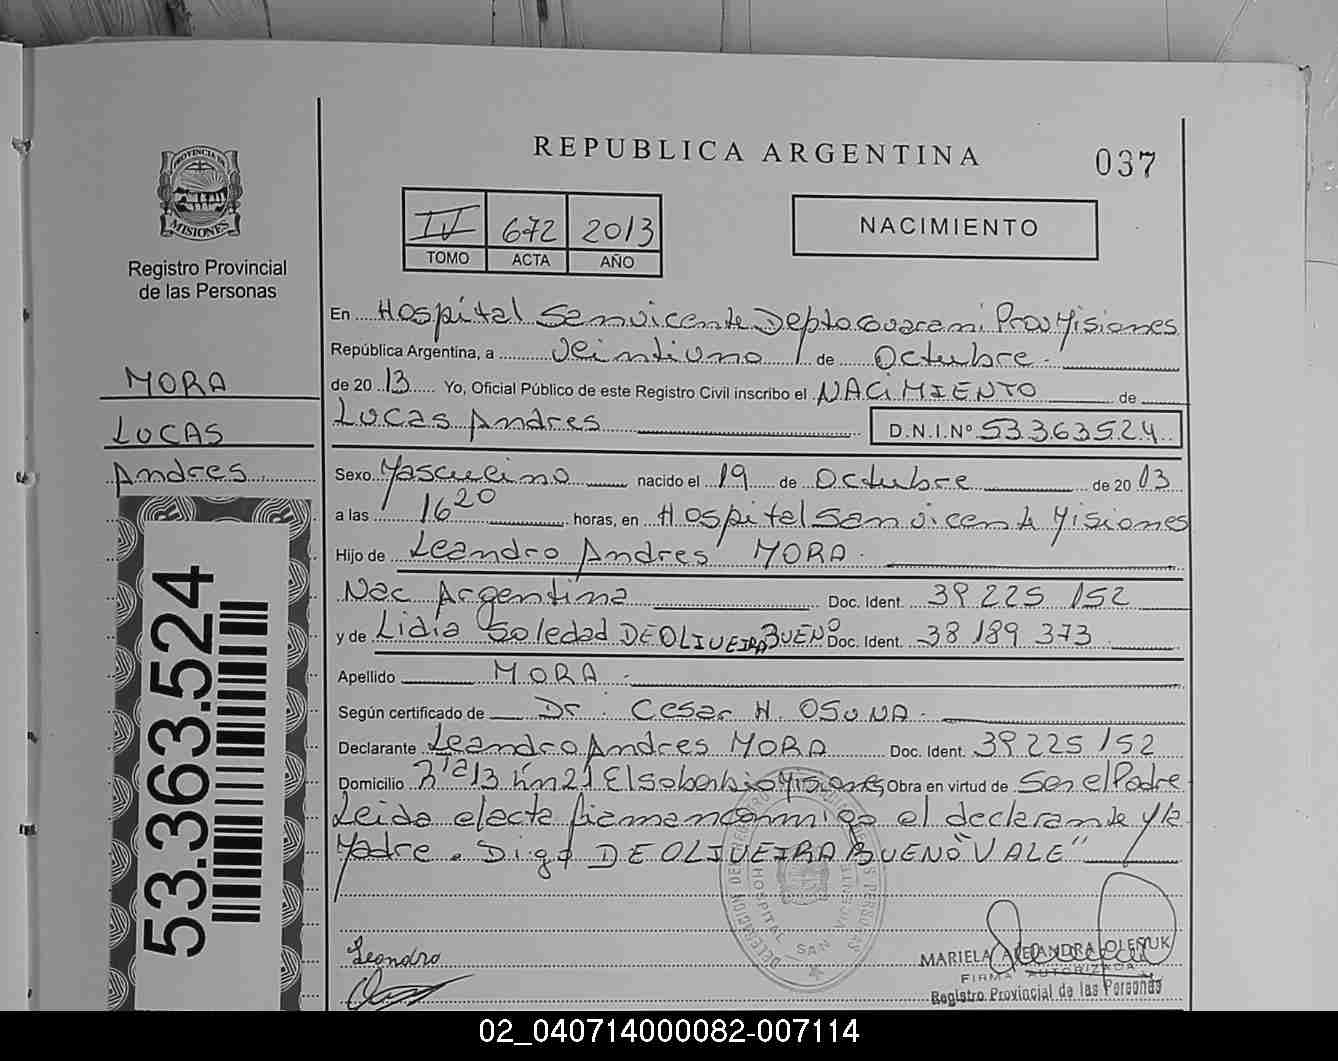 PROVINCIA DE
MISIONES
Registro Provincial
de las Personas
MORA
LUCAS
Andres
53.363.524
REPUBLICA ARGENTINA
037
IV 672 2013
TOMO ACTA AÑO
NACIMIENTO
En Hospital San vicente Depto Guarani Prov Misiones
República Argentina, a veintiuno de Octubre
de 20 13 Yo, Oficial Público de este Registro Civil inscribo el NACIMIENTO de
Lucas Andres D.N.I.Nº 53363524
Sexo Masculino nacido el 19 de Octubre de 20 13
a las 16 20 horas, en Hospital San vicente Misiones
Hijo de Leandro Andres MORA
Nac Argentina Doc. Ident. 39 225 152
y de Lidia Soledad DE OLIVEIRA BUENO Doc. Ident. 38 189 373
Apellido MORA
Según certificado de Dr. Cesar H. OSUNA
Declarante Leandro Andres MORA Doc. Ident. 39 225 152
Domicilio Rta 13 km 21 El soberbio Misiones Obra en virtud de Ser el Padre
Leida el acta firman conmigo el declarante y la
Madre. Digo DE OLIVEIRA BUENO "VALE"
HOSPITAL SAN VICENTE
Leandro
MARIELA ALEJANDRA OLEÑUK
FIRMA AUTORIZADA
Registro Provincial de las Personas
02_040714000082-007114